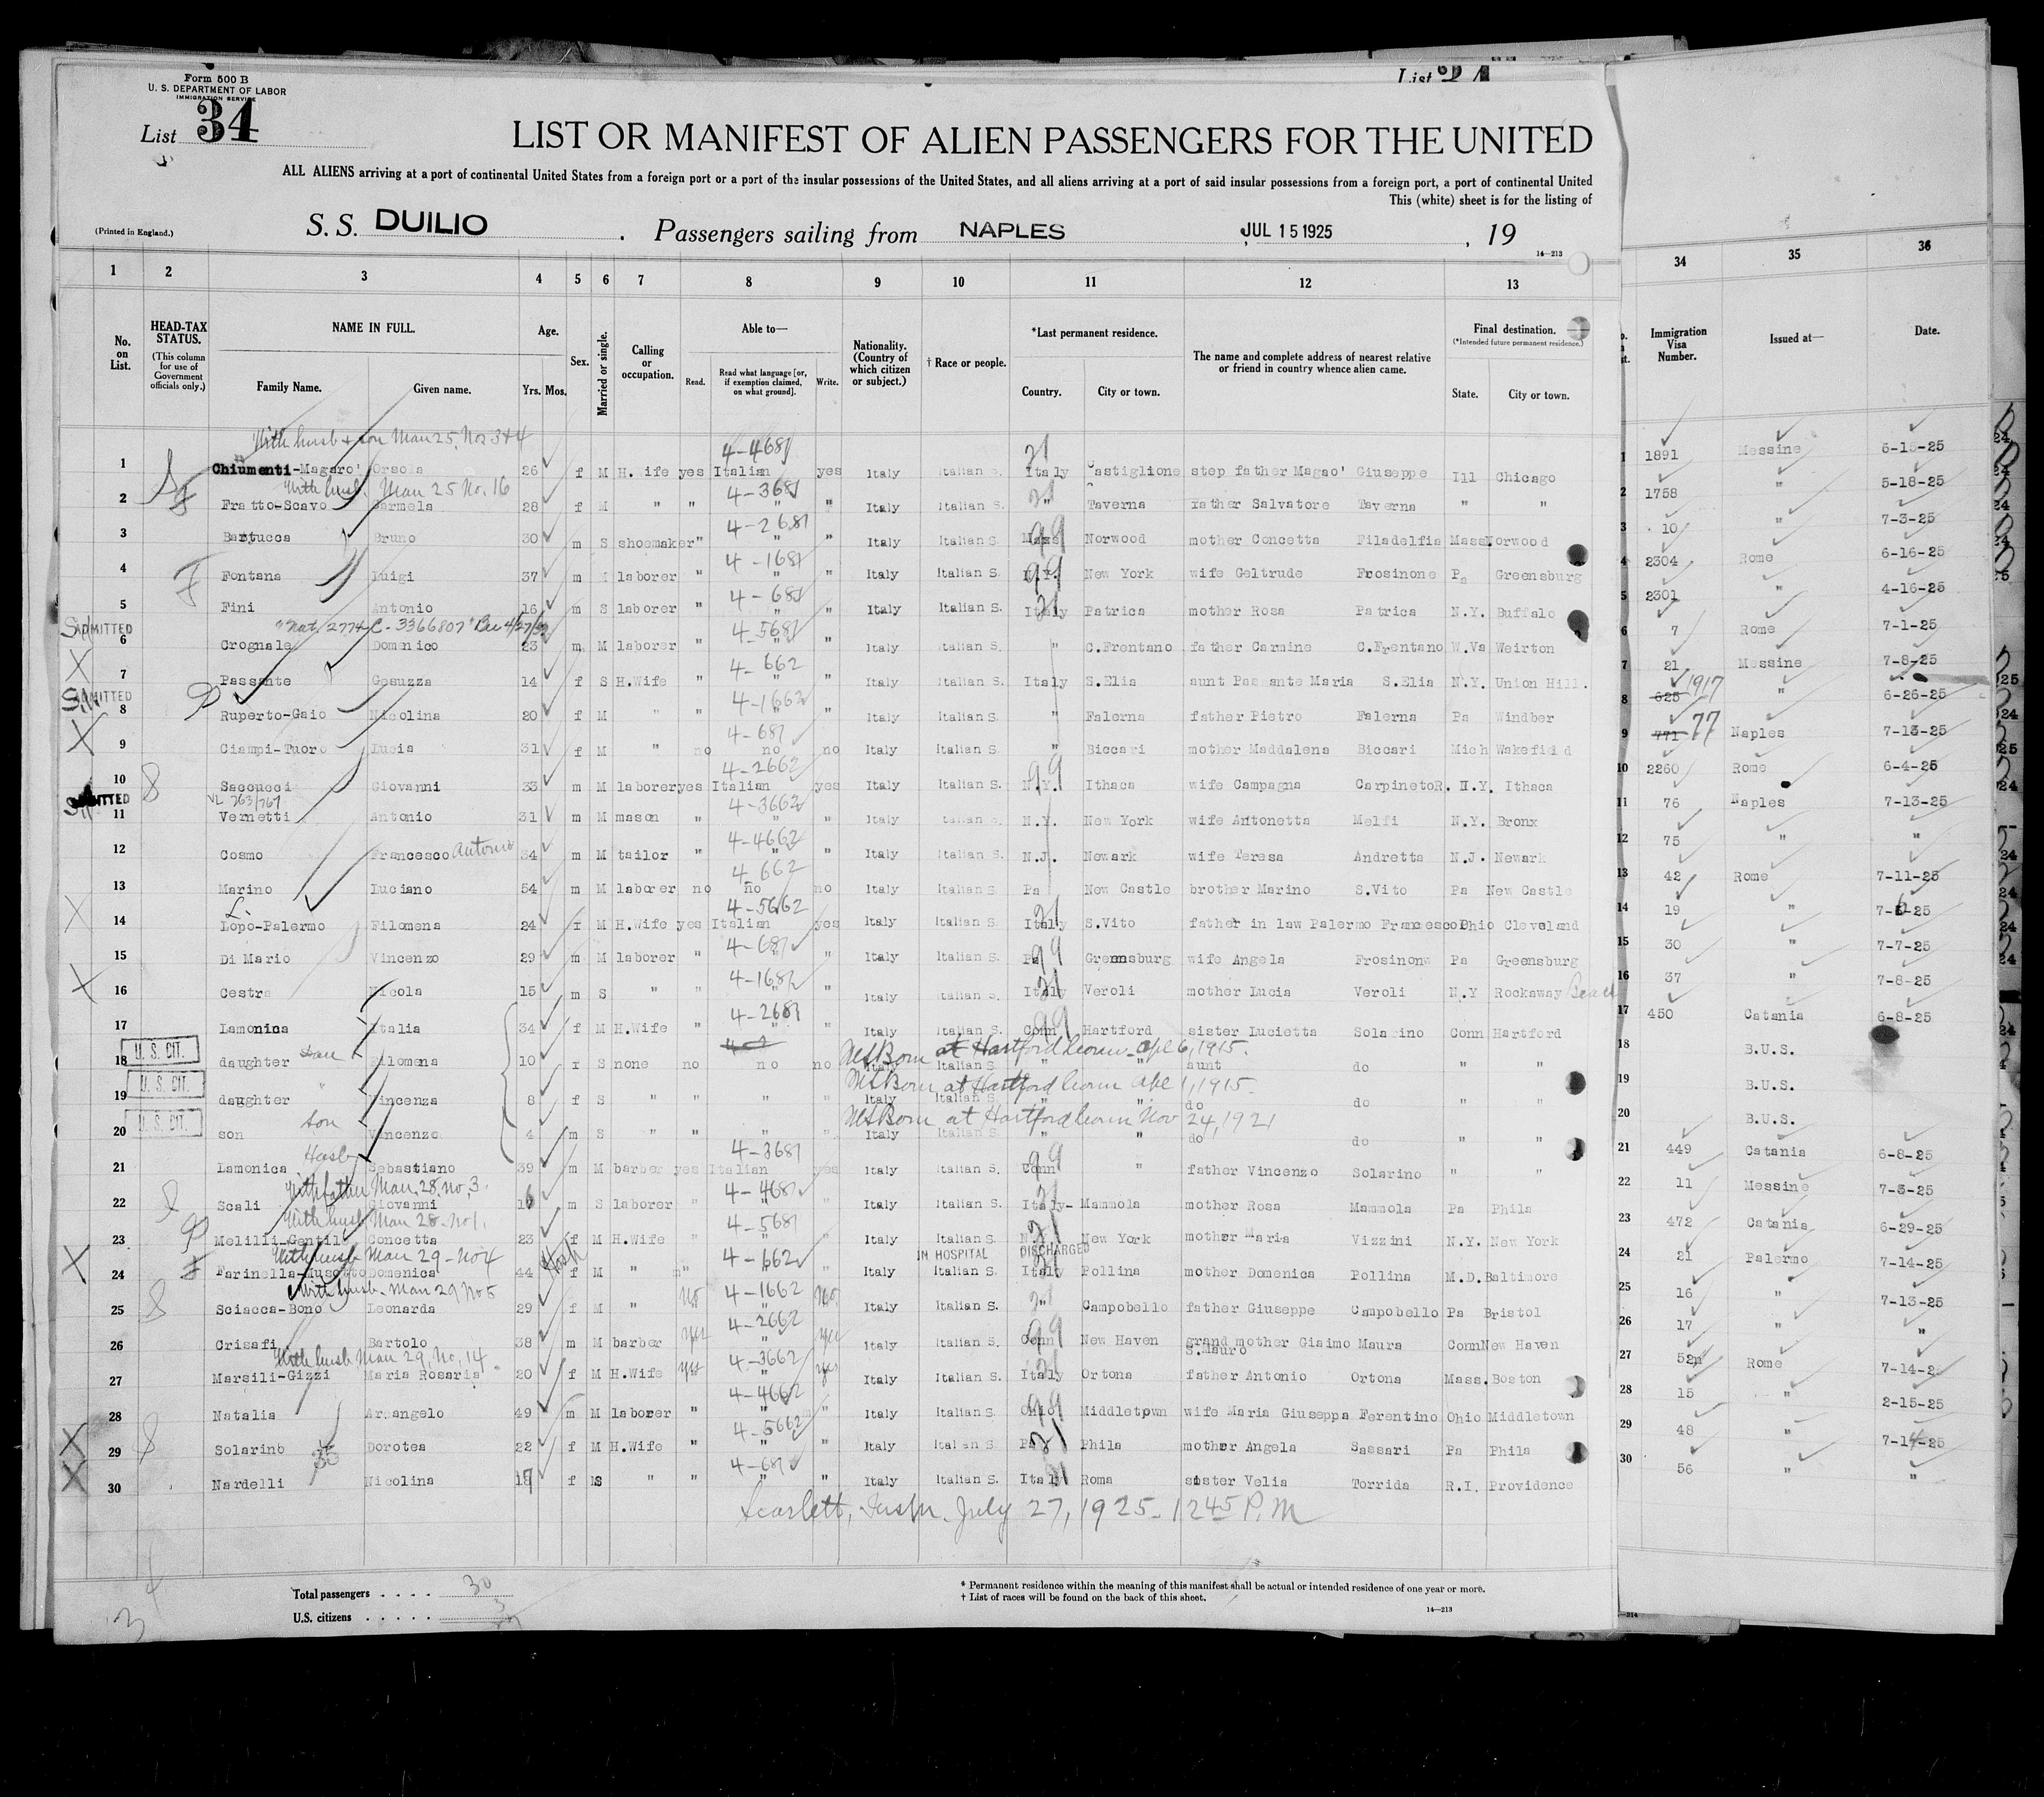 Form 500 B
U. S. DEPARTMENT OF LABOR
IMMIGRATION SERVICE
List 34
List
LIST OR MANIFEST OF ALIEN PASSENGERS FOR THE UNITED
ALL ALIENS arriving at a port of continental United States from a foreign port or a port of the insular possessions of the United States, and all aliens arriving at a port of said insular possessions from a foreign port, a port of continental United
This (white) sheet is for the listing of
(Printed in England.) S. S. DUILIO . Passengers sailing from NAPLES JUL 15 1925 , 19
14—213
1 2 3 4 5 6 7 8 9 10 11 12 13 34 35 36
No. on List. HEAD-TAX STATUS. (This column for use of Government officials only.) NAME IN FULL. Family Name. Given name. Age. Yrs. Mos. Sex. Married or single. Calling or occupation. Able to— Read. Read what language [or, if exemption claimed, on what ground]. Write. Nationality. (Country of which citizen or subject.) † Race or people. *Last permanent residence. Country. City or town. The name and complete address of nearest relative or friend in country whence alien came. Final destination. (*Intended future permanent residence.) State. City or town. Immigration Visa Number. Issued at— Date.
With husb & son Man 25, Nos 3+4 4-4681
1 Chiumenti-Magaro' Orsola 26 f M H. ife yes Italian yes Italy Italian S. Italy astiglione step father Magao' Giuseppe Ill Chicago 1891 Messine 5-15-25
With husb. Man 25 No. 16 4-3681
2 Fratto-Scavo Carmela 28 f M " " " " Italy Italian S. " Taverna father Salvatore Taverna " " 1758 " 5-18-25
4-2681
3 Bartucca Bruno 30 m S shoemaker " " " Italy Italian S. Mass Norwood mother Concetta Filadelfia Mass Norwood 10 " 7-3-25
4-1681
4 Fontana Luigi 37 m M laborer " " " Italy Italian S. N.Y. New York wife Geltrude Frosinone Pa Greensburg 2304 Rome 6-16-25
4-681
5 Fini Antonio 16 m S laborer " " " Italy Italian S. Italy Patrica mother Rosa Patrica N.Y. Buffalo 2301 " 4-16-25
ADMITTED C-3366807 4-5681
6 Crognale Domenico 23 m M laborer " " " Italy Italian S. " C.Frentano father Carmine C.Frentano W.Va Weirton 7 Rome 7-1-25
4-662
7 Passante Gesuzza 14 f S H.Wife " " " Italy Italian S. Italy S.Elia aunt Passante Maria S.Elia N.Y. Union Hill. 21 Messine 7-8-25
ADMITTED 4-1662
8 Ruperto-Gaio Nicolina 20 f M " " " " Italy Italian S. " Falerna father Pietro Falerna Pa Windber 625 1917 " 6-26-25
4-681
9 Ciampi-Tuoro Lucia 31 f M " no no no Italy Italian S. " Biccari mother Maddalena Biccari Mich Wakefield 771 77 Naples 7-13-25
4-2662
10 Saccucci Giovanni 33 m M laborer yes Italian yes Italy Italian S. N.Y. Ithaca wife Campagna CarpinetoR. N.Y. Ithaca 2260 Rome 6-4-25
ADMITTED VL 763/767 4-3662
11 Vernetti Antonio 31 m M mason " " " Italy Italian S. N.Y. New York wife Antonetta Melfi N.Y. Bronx 76 Naples 7-13-25
4-4662
12 Cosmo Francesco Antonio 34 m M tailor " " " Italy Italian S. N.J. Newark wife Teresa Andretta N.J. Newark 75 " "
4 662
13 Marino Luciano 54 m M laborer no no no Italy Italian S. Pa New Castle brother Marino S.Vito Pa New Castle 42 Rome 7-11-25
4-5662
14 Lopo-Palermo Filomena 24 f M H.Wife yes Italian yes Italy Italian S. Italy S.Vito father in law Palermo Francesco Ohio Cleveland 19 " 7-6-25
4-681
15 Di Mario Vincenzo 29 m M laborer " " " Italy Italian S. Pa Greensburg wife Angela Frosinone Pa Greensburg 30 " 7-7-25
4-1681
16 Cestra Nicola 15 m S " " " " Italy Italian S. Italy Veroli mother Lucia Veroli N.Y Rockaway Beach 37 " 7-8-25
4-2681
17 Lamonica Italia 34 f M H.Wife " " " Italy Italian S. Conn Hartford sister Lucietta Solarino Conn Hartford 450 Catania 6-8-25
U. S. CIT. Born at Hartford Conn Apl 6, 1915.
18 daughter Filomena 10 f S none no no no Italy Italian S. " " aunt do " " B.U.S.
U. S. CIT. Born at Hartford Conn Apl 1, 1915
19 daughter Vincenza 8 f S " " " " Italy Italian S. " " do do " " B.U.S.
U. S. CIT. Born at Hartford Conn Nov 24, 1921
20 son Vincenzo 4 m S " " " " Italy Italian S. " " do do " " B.U.S.
Husb 4-3681
21 Lamonica Sebastiano 39 m M barber yes Italian yes Italy Italian S. Conn " father Vincenzo Solarino " " 449 Catania 6-8-25
With father Man. 28, no, 3. 4-4681
22 Scali Giovanni 16 m S laborer " " " Italy Italian S. Italy- Mammola mother Rosa Mammola Pa Phila 11 Messine 7-3-25
With husb Man 28 - No 1. 4-5681
23 Melilli-Gentil Concetta 23 f M H.Wife " " " Italy Italian S. N.Y. New York mother Maria Vizzini N.Y. New York 472 Catania 6-29-25
With husb Man 29 - No 4 Hosp 4-662 IN HOSPITAL DISCHARGED
24 Farinella-Musotto Domenica 44 f M " " " " Italy Italian S. Italy Pollina mother Domenica Pollina M.D. Baltimore 21 Palermo 7-14-25
With husb. Man 29 No 5 4-1662
25 Sciacca-Bono Leonarda 29 f M " no " no Italy Italian S. " Campobello father Giuseppe Campobello Pa Bristol 16 " 7-13-25
4-2662
26 Crisafi Bartolo 38 m M barber yes " yes Italy Italian S. Conn New Haven grand mother Giaimo Maura S.Mauro Conn New Haven 17 " "
With husb Man 29, No, 14 4-3662
27 Marsili-Gizzi Maria Rosaria 20 f M H.Wife yes " yes Italy Italian S. Italy Ortona father Antonio Ortona Mass. Boston 52 Rome 7-14-25
4-4662
28 Natalia Arcangelo 49 m M laborer " " " Italy Italian S. Ohio Middletown wife Maria Giuseppa Ferentino Ohio Middletown 15 " 2-15-25
4-5662
29 Solarino Dorotea 22 f M H.Wife " " " Italy Italian S. Pa Phila mother Angela Sassari Pa Phila 48 " 7-14-25
4-681
30 Nardelli Nicolina 17 f S " " " " Italy Italian S. Italy Roma sister Velia Torrida R.I. Providence 56 " "
Scarlett, Insp. July 27, 1925 - 12 45 P.M
Total passengers . . . . 30
U.S. citizens . . . . . 3
* Permanent residence within the meaning of this manifest shall be actual or intended residence of one year or more.
† List of races will be found on the back of this sheet.
14—213